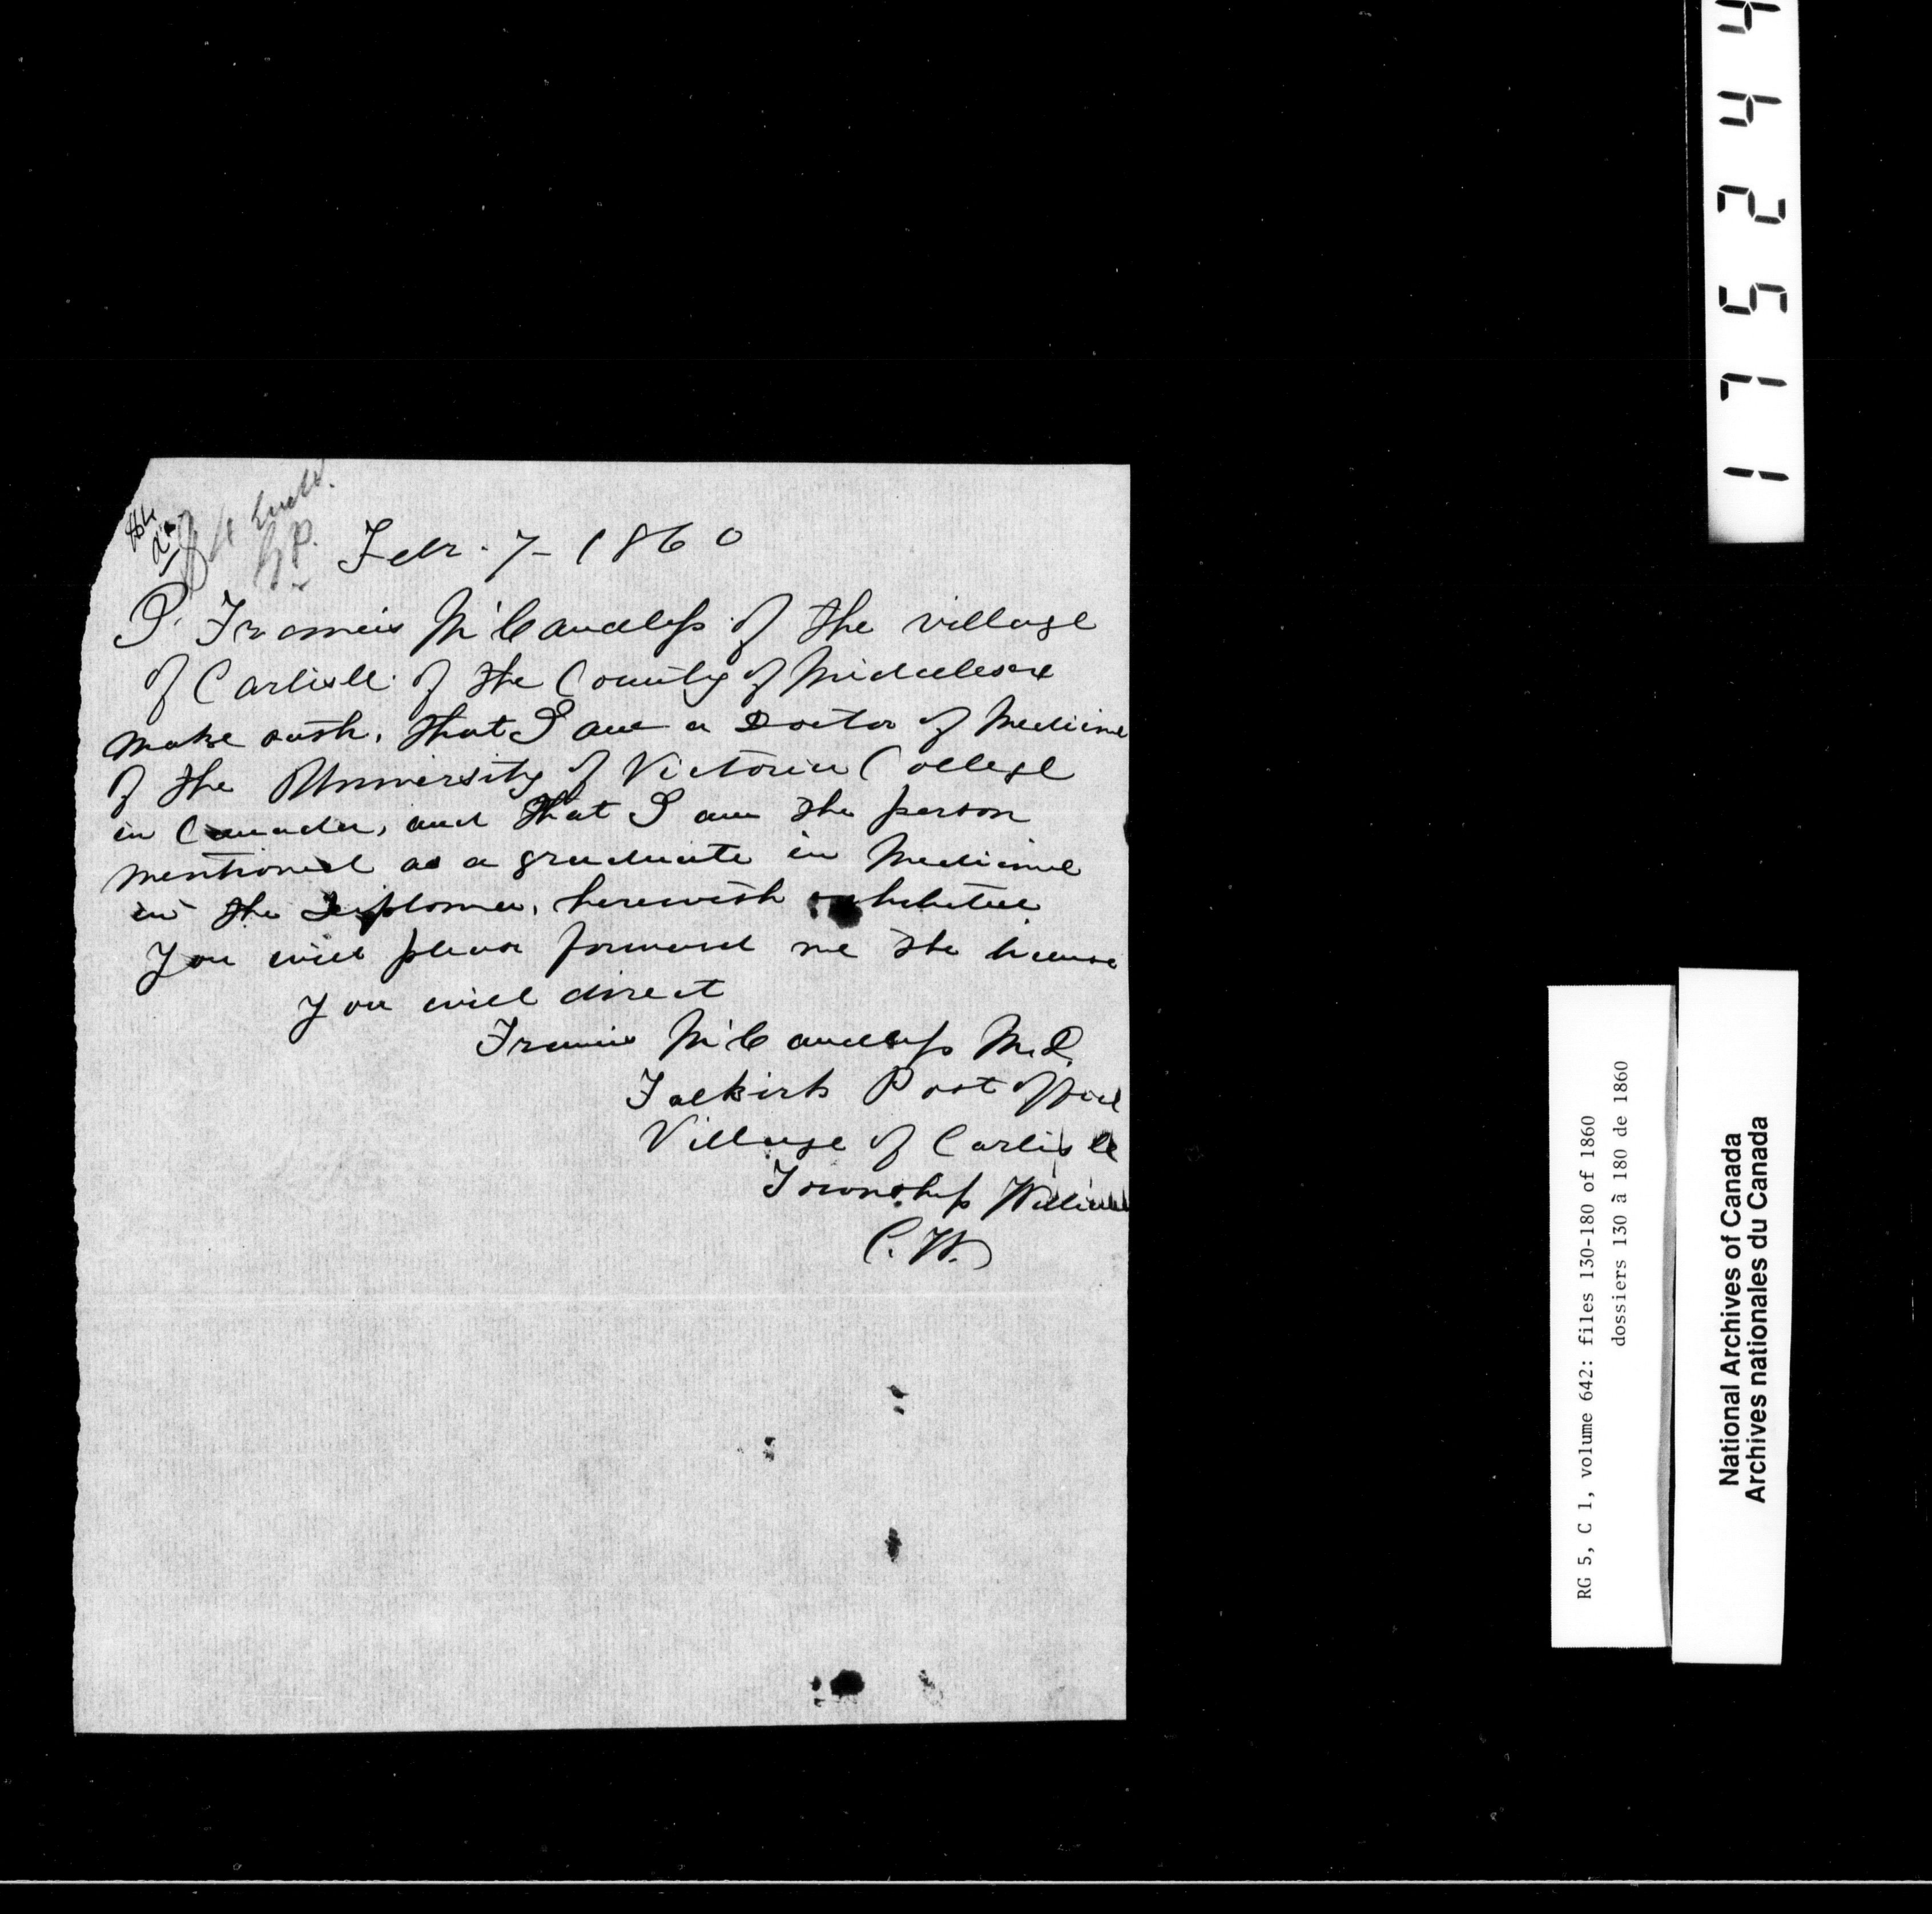 $4 Encld.
G.P.
Febr. 7 - 1860
I. Francis McCandless of the village
of Carlisle of the County of Middlesex
make oath, that I am a Doctor of Medicine
of the University of Victoria College
in Canada, and that I am the person
mentioned as a graduate in Medicine
in the Diploma, herewith exhibited
You will please forward me the license
You will direct
Francis McCandless M.D.
Falkirk Post office
Village of Carlisle
Township William
C.W.
175244
RG 5, C 1, volume 642: files 130-180 of 1860
dossiers 130 à 180 de 1860
National Archives of Canada
Archives nationales du Canada